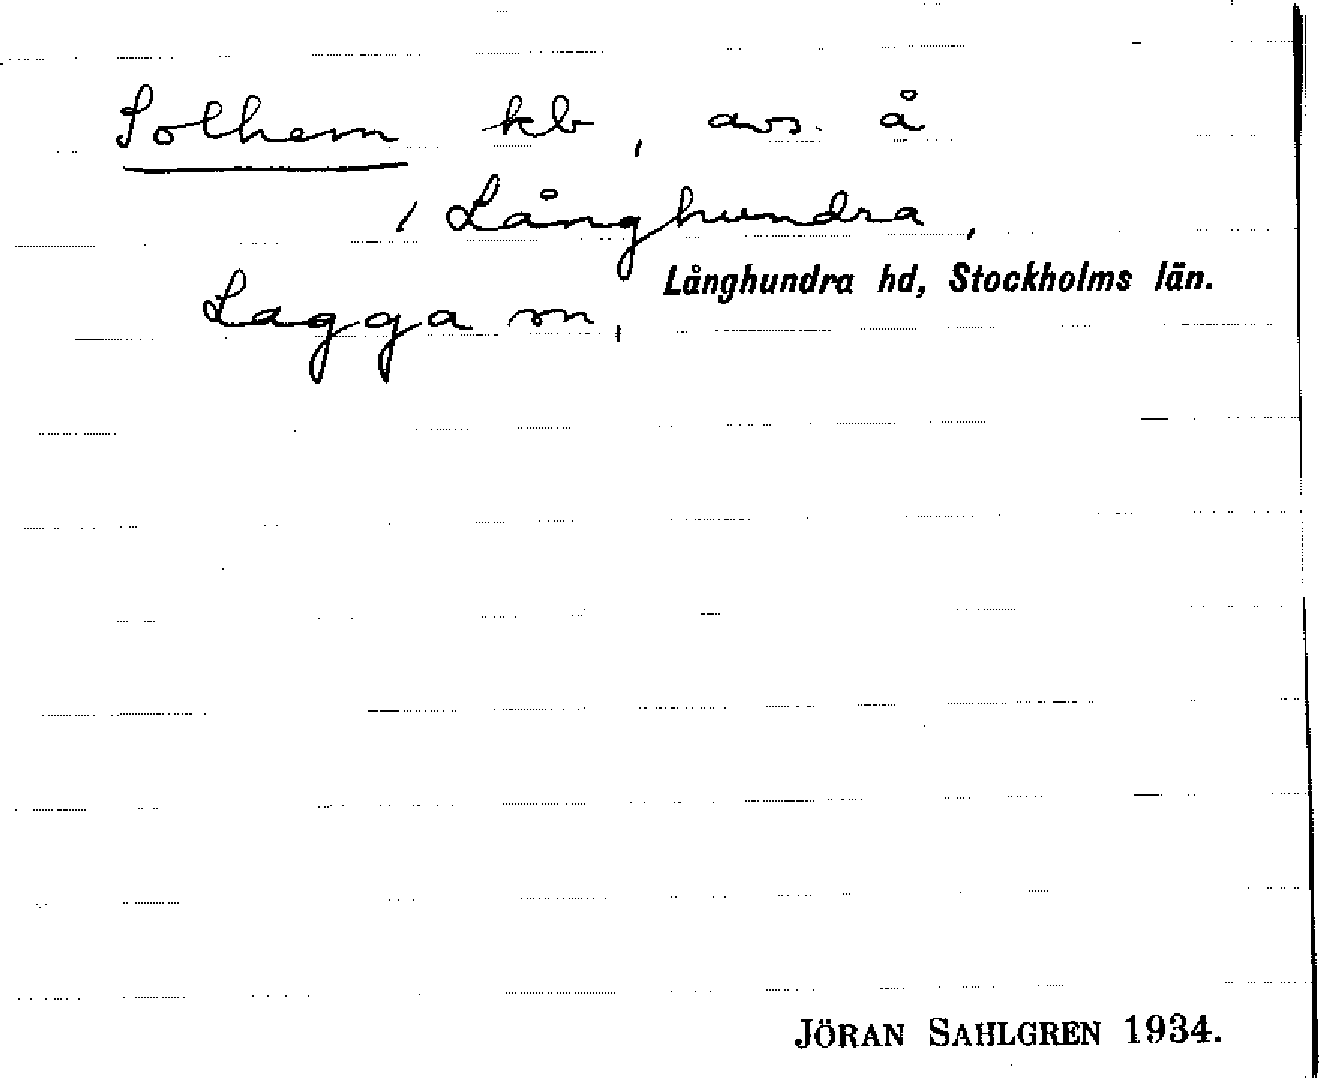 Solhem kb, avs. å
1 Långhundra,
Långhundra hd, Stockholms län.
Lagga sn,
JÖRAN SAHLGREN 1934.